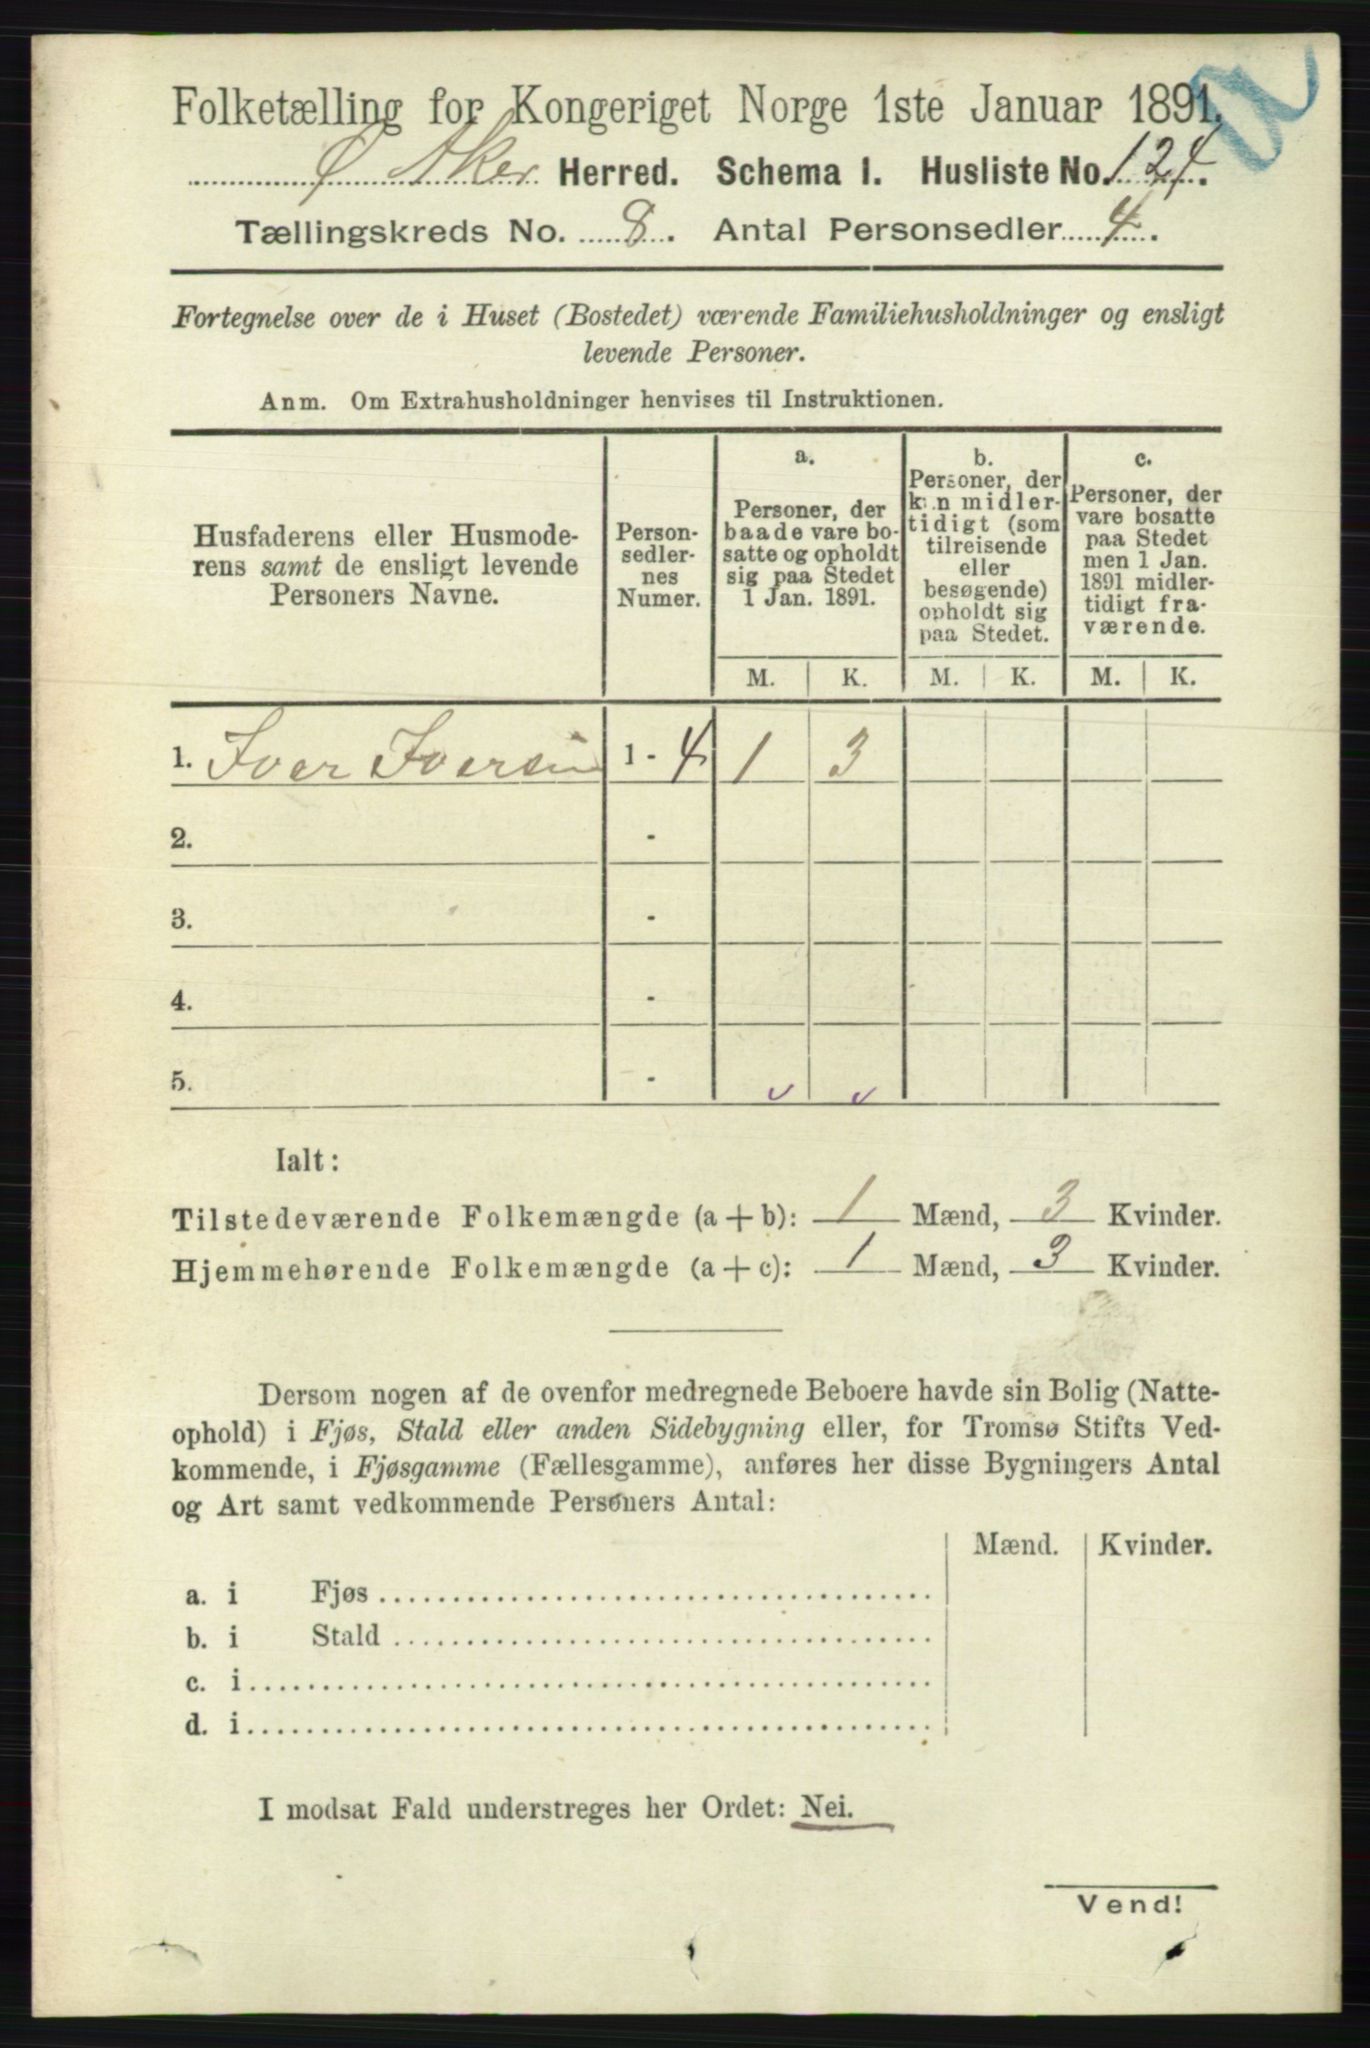 Folketælling for Kongeriget Norge 1ste Januar 1891.
Ø. Aker Herred. Schema I. Husliste No. 124.
Tællingskreds No. 8. Antal Personsedler 4.
Fortegnelse over de i Huset (Bostedet) værende Familiehusholdninger og ensligt
levende Personer.
Anm. Om Extrahusholdninger henvises til Instruktionen.
Husfaderens eller Husmode-
rens samt de ensligt levende
Personers Navne.
Person-
sedler-
nes
Numer.
a.
Personer, der
baade vare bo-
satte og opholdt
sig paa Stedet
1 Jan. 1891.
b.
Personer, der
kun midler-
tidigt (som
tilreisende
eller
besøgende)
opholdt sig
paa Stedet.
c.
Personer, der
vare bosatte
paa Stedet
men 1 Jan.
1891 midler-
tidigt fra-
værende.
M. K. M. K. M. K.
1. Iver Iversen 1 - 4 1 3
2. -
3. -
4. -
5. -
Ialt:
Tilstedeværende Folkemængde (a + b): 1 Mænd, 3 Kvinder.
Hjemmehørende Folkemængde (a + c): 1 Mænd, 3 Kvinder.
Dersom nogen af de ovenfor medregnede Beboere havde sin Bolig (Natte-
ophold) i Fjøs, Stald eller anden Sidebygning eller, for Tromsø Stifts Ved-
kommende, i Fjøsgamme (Fællesgamme), anføres her disse Bygningers Antal
og Art samt vedkommende Personers Antal:
Mænd. Kvinder.
a. i Fjøs
b. i Stald
c. i
d. i
I modsat Fald understreges her Ordet: Nei.
Vend!